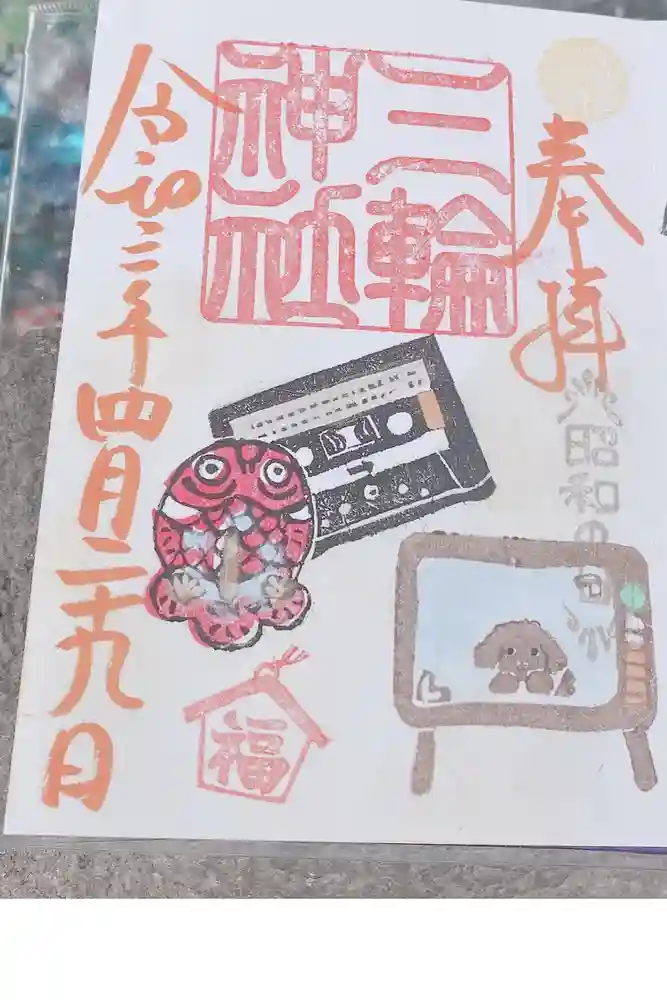 奉拝
昭和の日
三輪
神社
福
令和三年四月二十九日